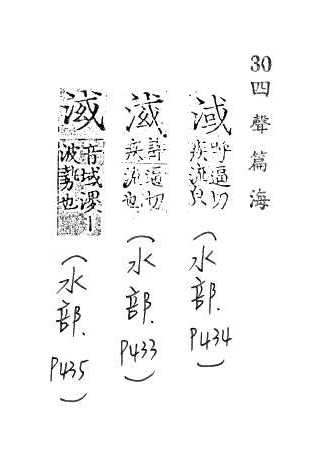 30四聲篇海
淢
呼逼切
疾流皃
(水部. P434)
許逼切
疾流也
(水部. P433)
音域漻丨
波勢也
(水部. P435)